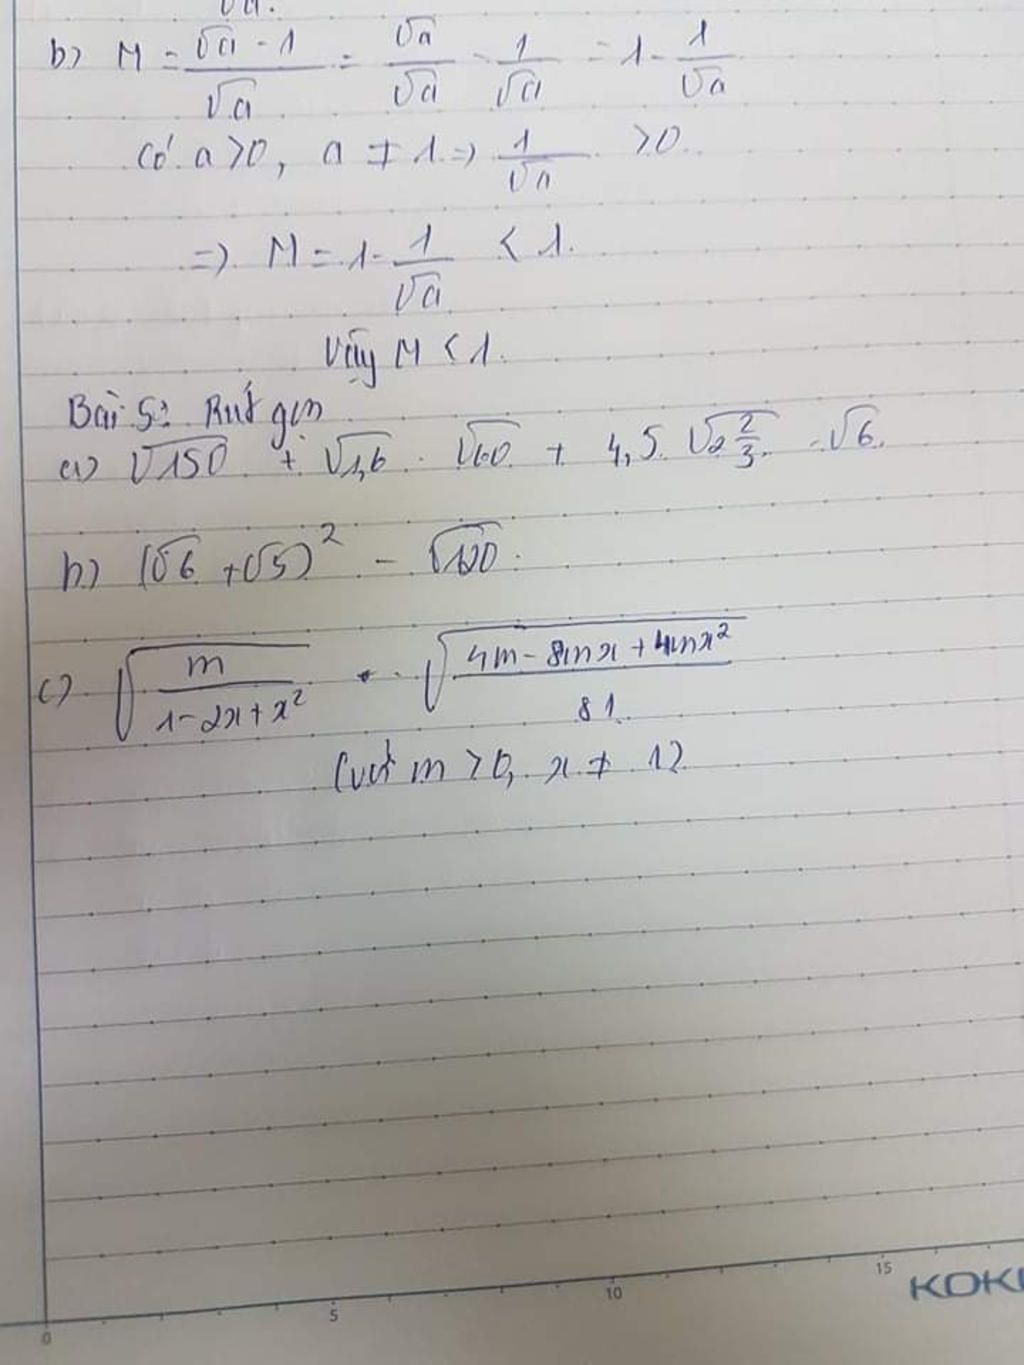 b) M = (√a - 1)/√a = √a/√a - 1/√a = 1 - 1/√a
Có a > 0, a ≠ 1 => 1/√a > 0
=> M = 1 - 1/√a < 1.
Vậy M < 1.
Bài 5: Rút gọn
a) √150 + √1,6 . √60 + 4,5 . √(2 2/3) - √6.
b) (√6 + √5)² - √120.
c) √(m/(1 - 2x + x²)) . √((4m - 8mx + 4mx²)/81)
(với m > 0, x ≠ 1)
0 5 10 15